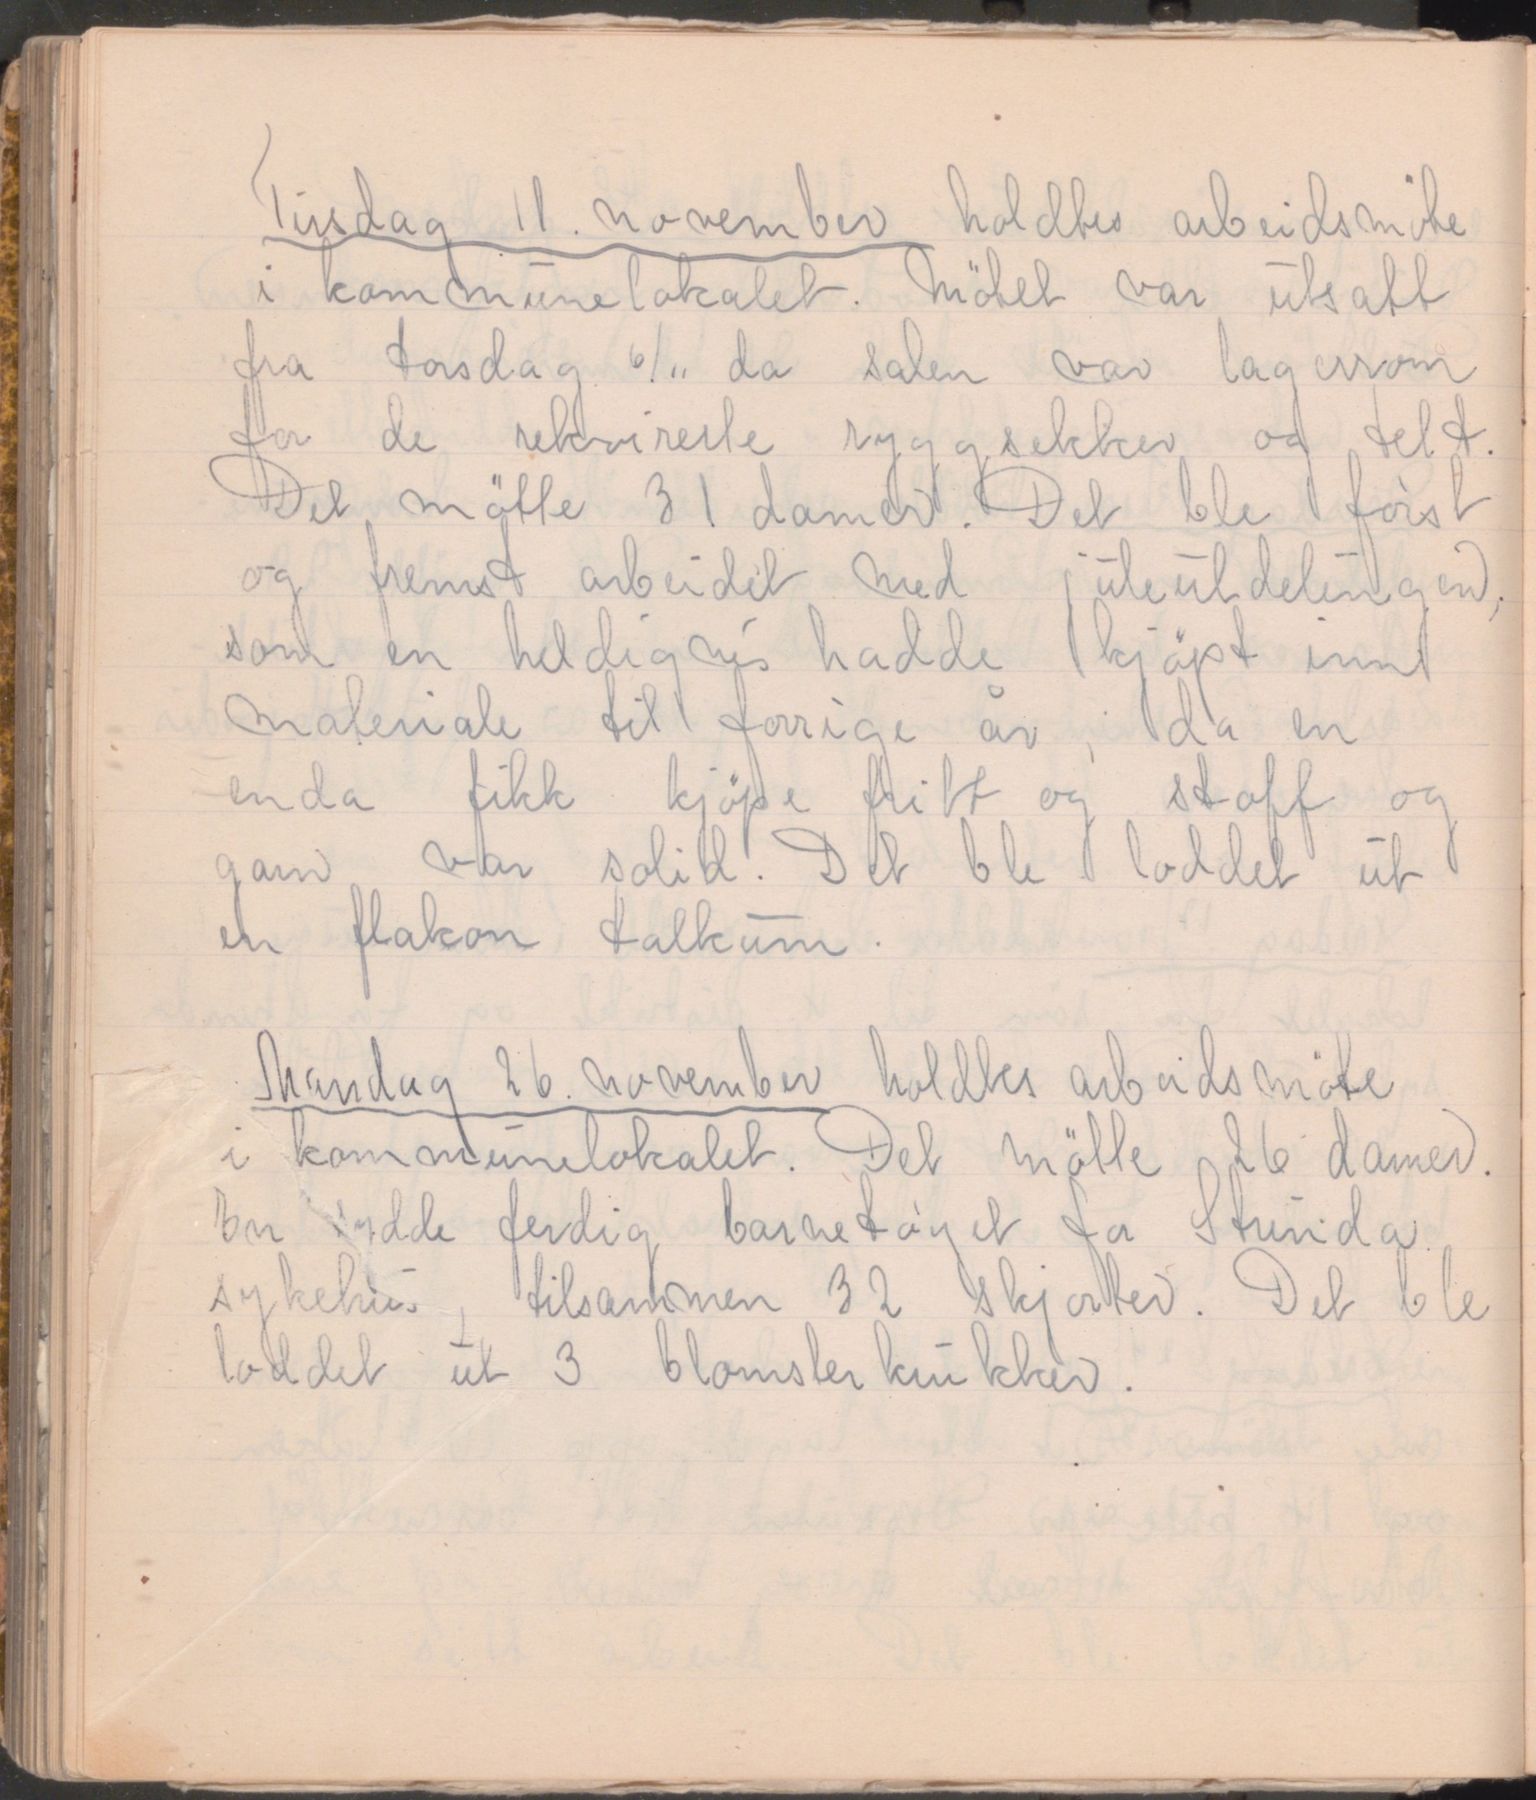 Tirsdag 11. november holdtes arbeidsmöte
i kommunelokalet. Mötet var utsatt
fra torsdag 6/11 da salen var lagerrom
for de rekvirerte ryggsekker og telt.
Det mötte 31 damer. Det ble först
og fremst arbeidet med juleutdelingen,
som en heldigvis hadde kjöpt inn
materiale til forrige år, da en
enda fikk kjöpe fritt og stoff og
garn var solid. Det ble loddet ut
en flakon talkum.
Mandag 26. november holdtes arbeidsmöte
i kommunelokalet. Det mötte 26 damer.
En sydde ferdig barnetöyet for Strinda
sykehus, tilsammen 32 skjorter. Det ble
loddet ut 3 blomsterkrukker.